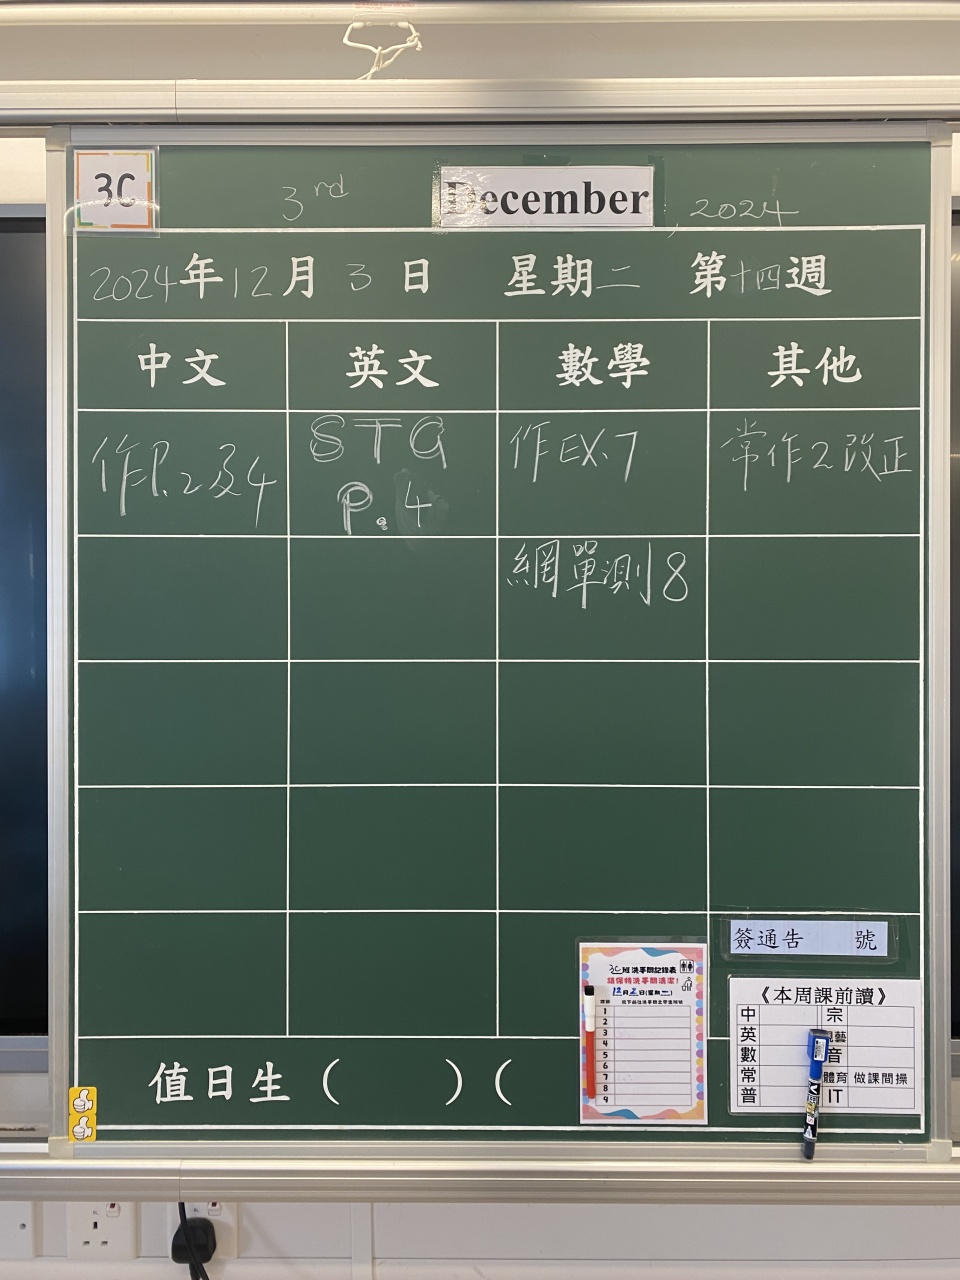 3C
3rd December, 2024
2024年12月3日 星期二 第十四週
中文 英文 數學 其他
作P.2及4 STG P.4 作EX.7 常作2改正
網單測8
簽通告 號
3C班 洗手間記錄表
請保持洗手間清潔!
12月3日(星期二)
1
2
3
4
5
6
7
8
9
《本周課前讀》
中 宗
英 視藝
數 音
常 體育 做課間操
普 IT
值日生 ( ) (